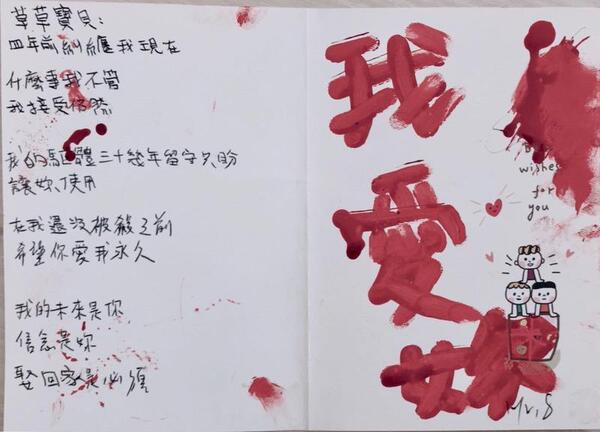 草草寶貝:
四年前糾纏我現在
什麼事我不管
我接受
我的軀體三十幾年留守久盼
讓妳使用
在我還沒被殺之前
希望你愛我永久
我的未來是你
信念是妳
娶回家是必須
我
愛
妳
wishes
for
you
Mr.S